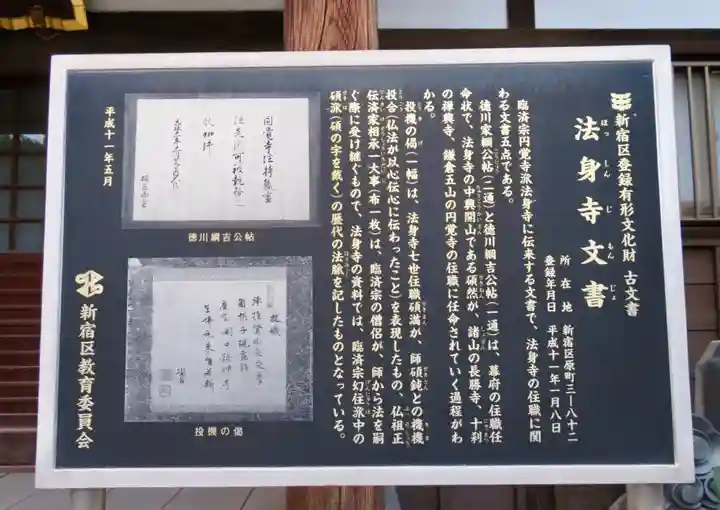 新宿区登録有形文化財 古文書
法身寺文書
ほっしんじもんじょ
所在地 新宿区原町三ー八二
登録年月日 平成十一年一月八日
臨済宗円覚寺派法身寺に伝来する文書で、法身寺の住職に関
わる文書五点である。
徳川家綱公帖(二通)と徳川綱吉公帖(一通)は、幕府の住職任
命状で、法身寺の中興開山である碩然が、諸山の長勝寺、十刹
の禅興寺、鎌倉五山の円覚寺の住職に任命されていく過程がわ
かる。
投機の偈(一幅)は、法身寺七世住職碩満が、師碩鈍との機機
投合(仏法が以心伝心に伝わったこと)を表現したもの、仏祖正
伝済家相承一大事(布一枚)は、臨済宗の僧侶が、師から法を嗣
ぐ際に受け継ぐもので、法身寺の資料では、臨済宗幻住派中の
碩派(碩の字を戴く)の歴代の法脈を記したものとなっている。
平成十一年五月
新宿区教育委員会
徳川綱吉公帖
投機の偈